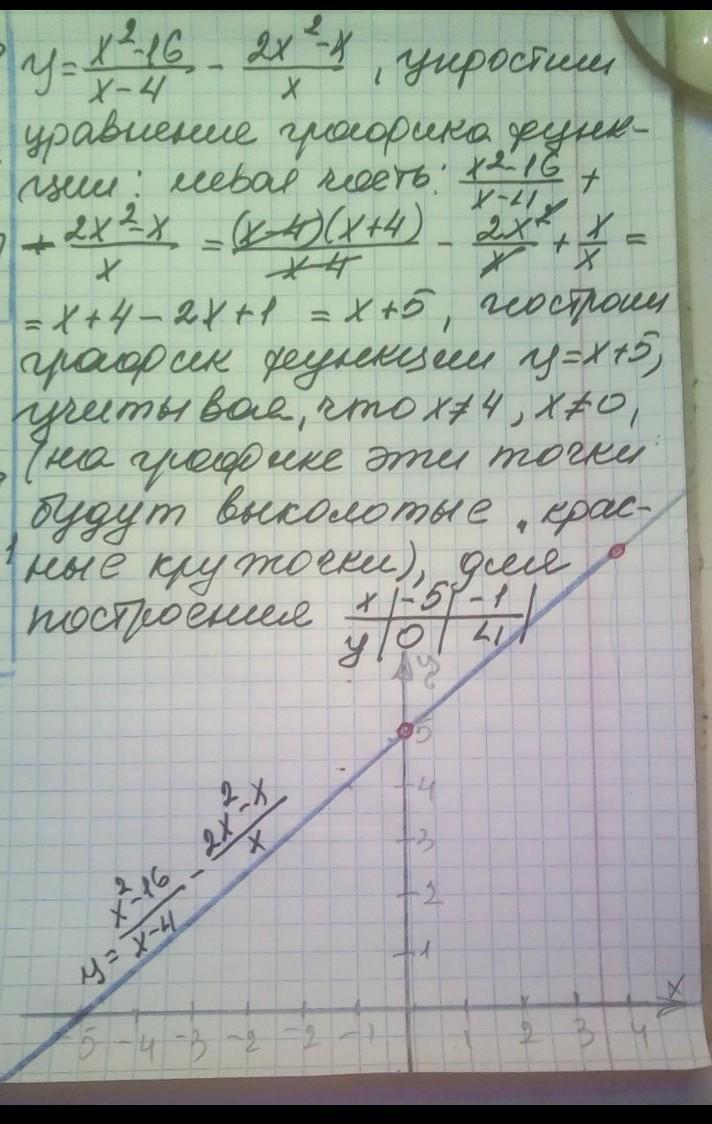 y = (x²-16)/(x-4) - (2x²-x)/x , упростим
уравнение графика функ-
ции: левая часть: (x²-16)/(x-4) +
+ (2x²-x)/x = (x-4)(x+4)/(x-4) - 2x²/x + x/x =
= x+4-2x+1 = x+5, построим
график функции y=x+5,
учитывая, что x≠4, x≠0,
(на графике эти точки
будут выколотые, крас-
ные кружочки), для
построения x | -5 | -1 |
y | 0 | 4 |
y
5
4
3
2
1
y = (x²-16)/(x-4) - (2x²-x)/x
x
-5 -4 -3 -2 -2 -1 1 2 3 4